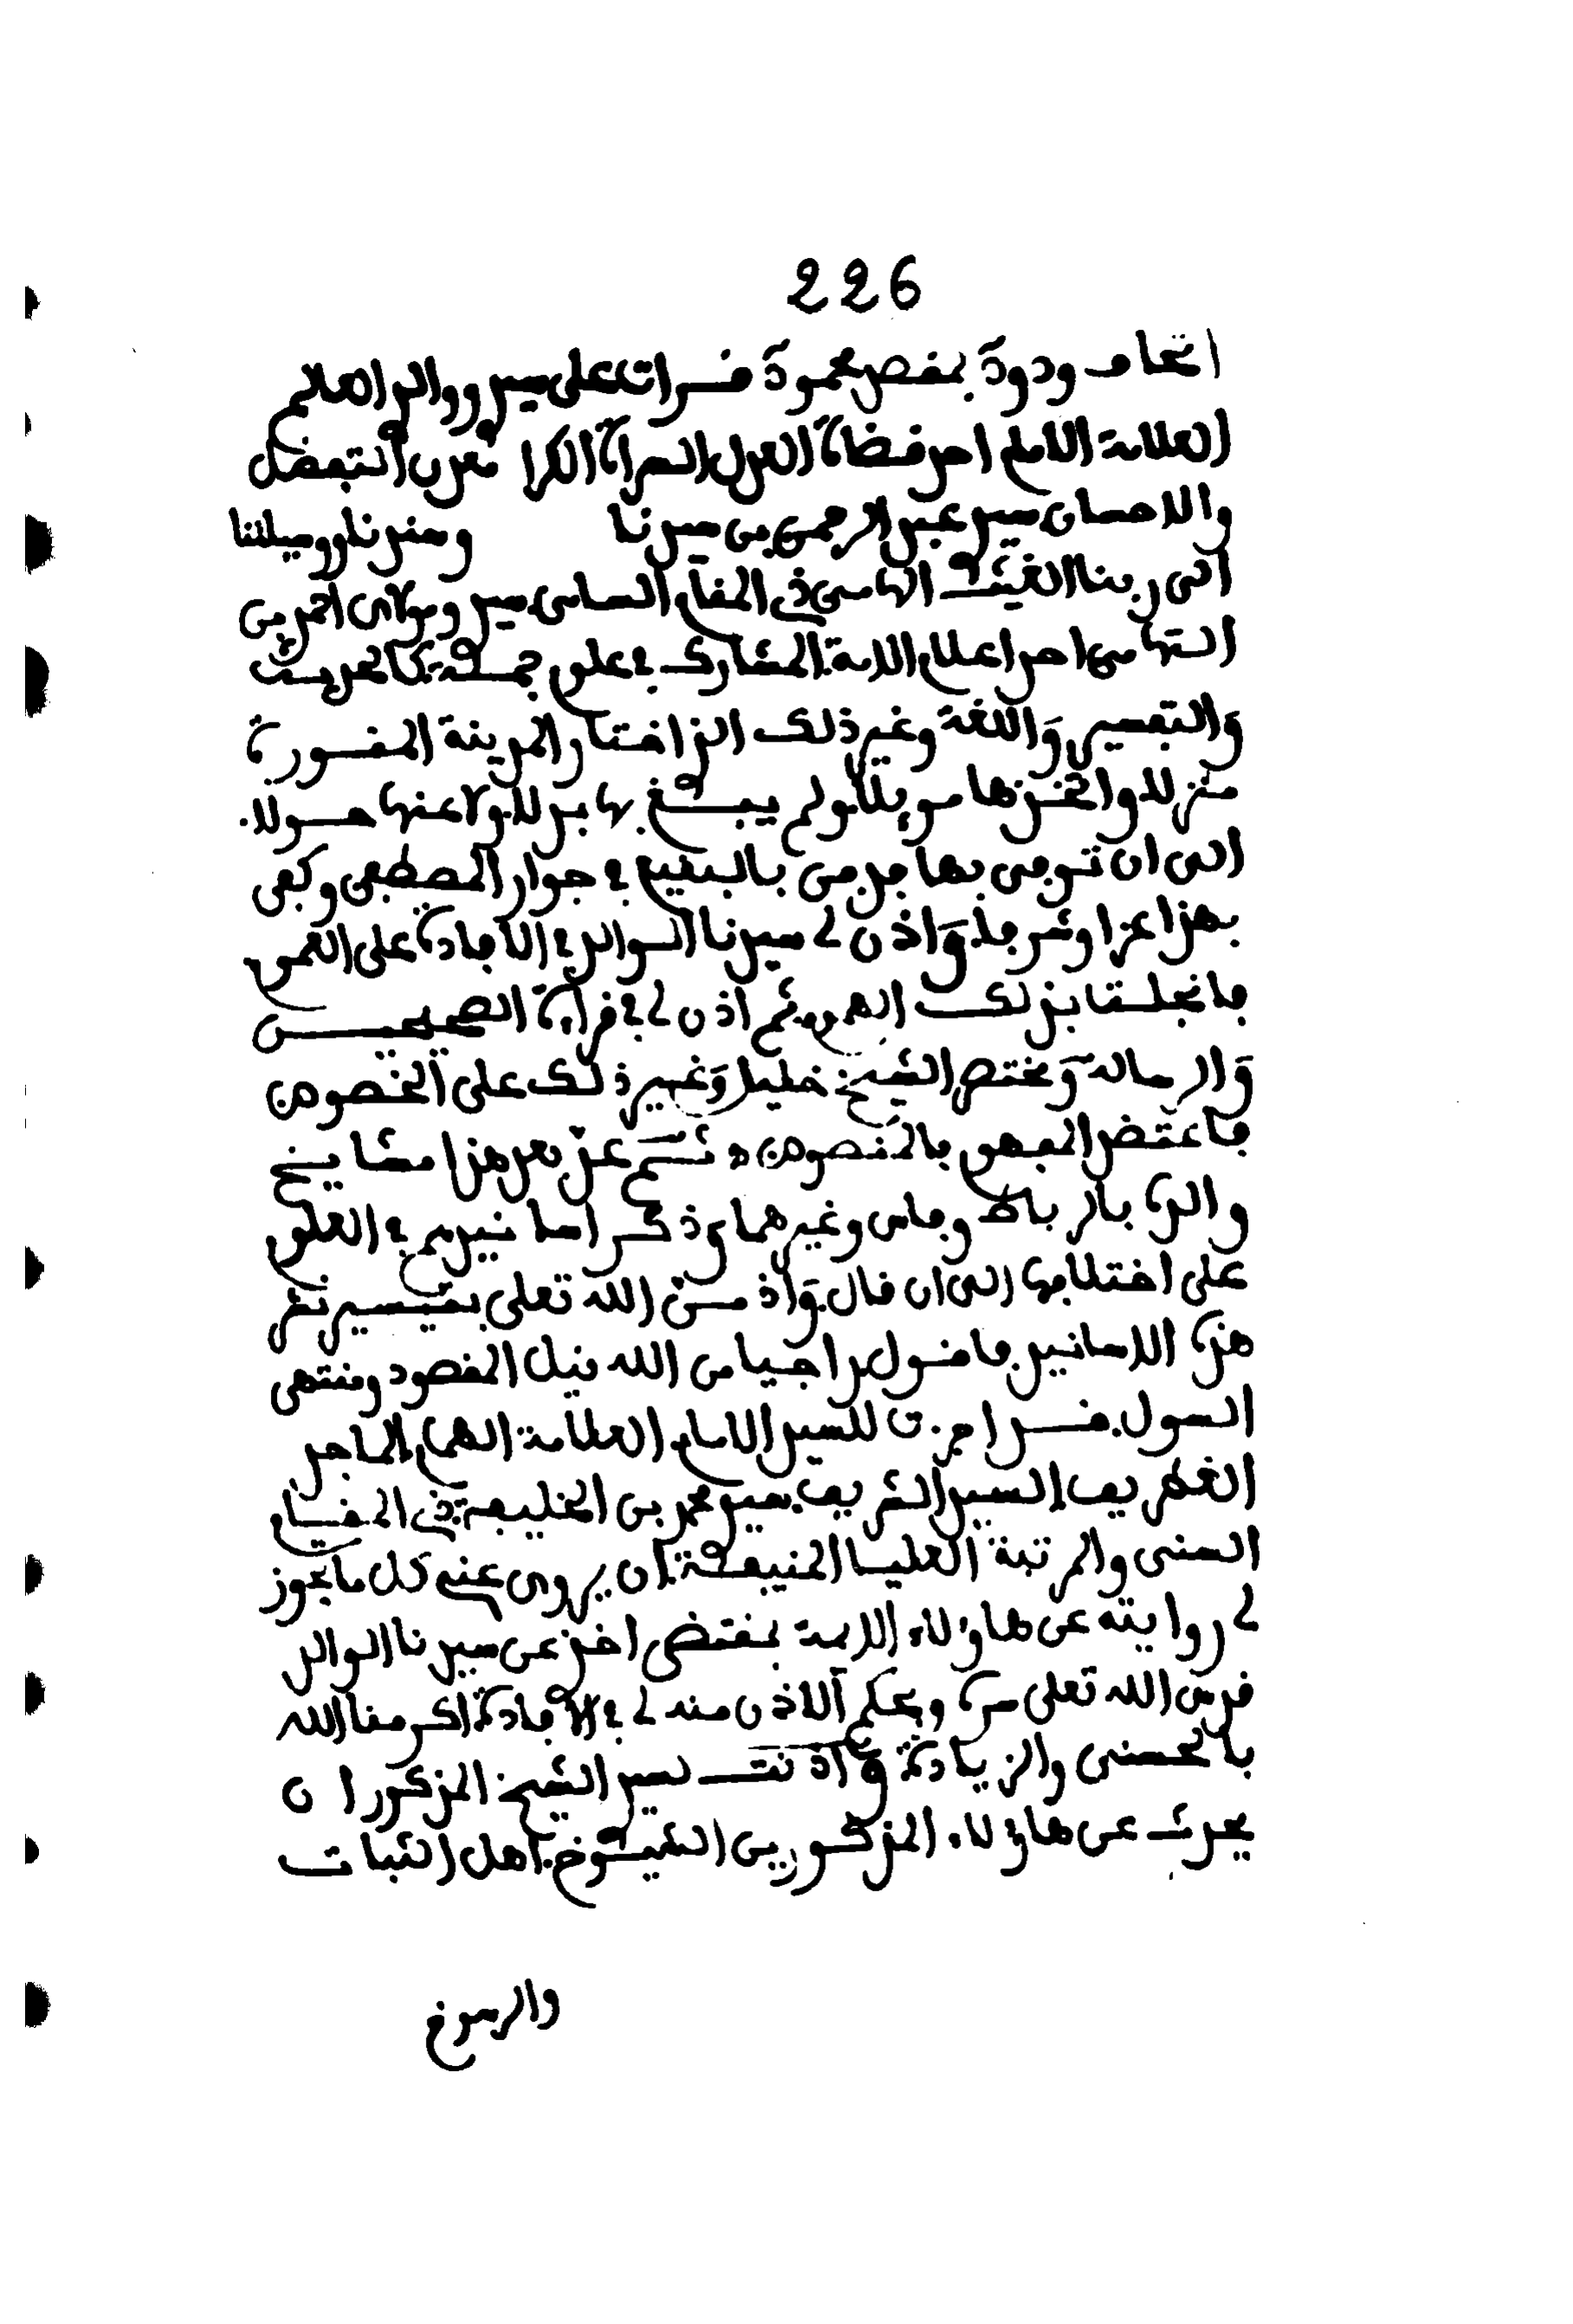 226
اتحاف ودود بمقصد محمود قد قرات على سيدي ووالدي العالم
العلامة الامام احد قضاة العدل السراة الكرام معدن التفضل
والاحسان سيدي عبد الرحمن بن سيدنا وسندنا ووسيلتنا
الى ربنا الغيث الهامي ذي المقام السامي سيدي ومولاي احمد بن
التهامي احد اعلام الامة المشارك في علوم جمة كالحديث
والتفسير واللغة وغير ذلك الذي اختار المدينة المنورة
منزلا واتخذها موئلا ولم يبتغ بها بدلا ولا عنها حولا
الى ان توفي بها فدفن بالبقيع في جوار المصطفى وكفى
بهذا عزا وشرفا واذن لي سيدنا الوالد في الافادة على العموم
فانجلت بذلك الهموم ثم اذن لي في قراءة الصحيحين
والرسالة ومختصر الشيخ خليل وغير ذلك على الخصوص
فاعتضد المفهوم بالمنصوص ثم عد بعد هذا مشايخ
والده بالرباط وفاس وغيرهما وذكر اسانيدهم في العلوم
على اختلافها الى ان قال واذ من الله تعلى بتيسير نشر
هذه الاسانيد فاقول راجيا من الله نيل المقصود ومنتهى
السول قد اجزت للسيد الامام العلامة الهمام الماجد
الغطريف السيد الشريف سيدي محمد بن الخليفة ذي المقام
السني والمرتبة العليا المنيفة ان يروي عني كل ما يجوز
لي روايته عن هاؤلاء الايمة بمقتضى اخذي عن سيدنا الوالد
قدس الله تعلى سره وبحكم الاذن منه لي في الافادة اكرمنا الله
بالحسنى والزيادة واذنت لسيدي الشيخ المذكور ان
يحدث عن هاؤلاء المذكورين الشيوخ اهل الثبات
والرسوخ